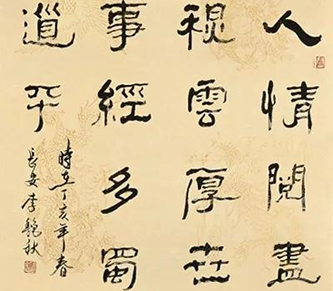 人情閱盡
秋雲厚世
事經多蜀
道平
時在丁亥年春
長安李艷秋